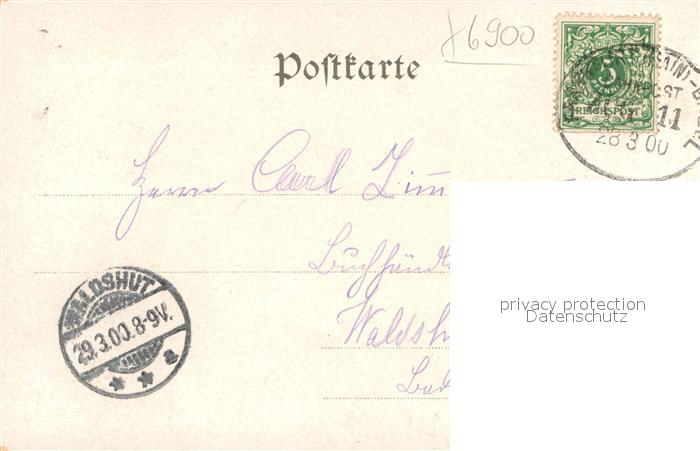 +6900
Postkarte
5
PFENNIG
REICHSPOST
11
28 3 00
Herrn Carl Zim
Buchhändl
Waldsh
Bad
WALDSHUT
29.3.00.8-9V.
* * a
privacy protection
Datenschutz